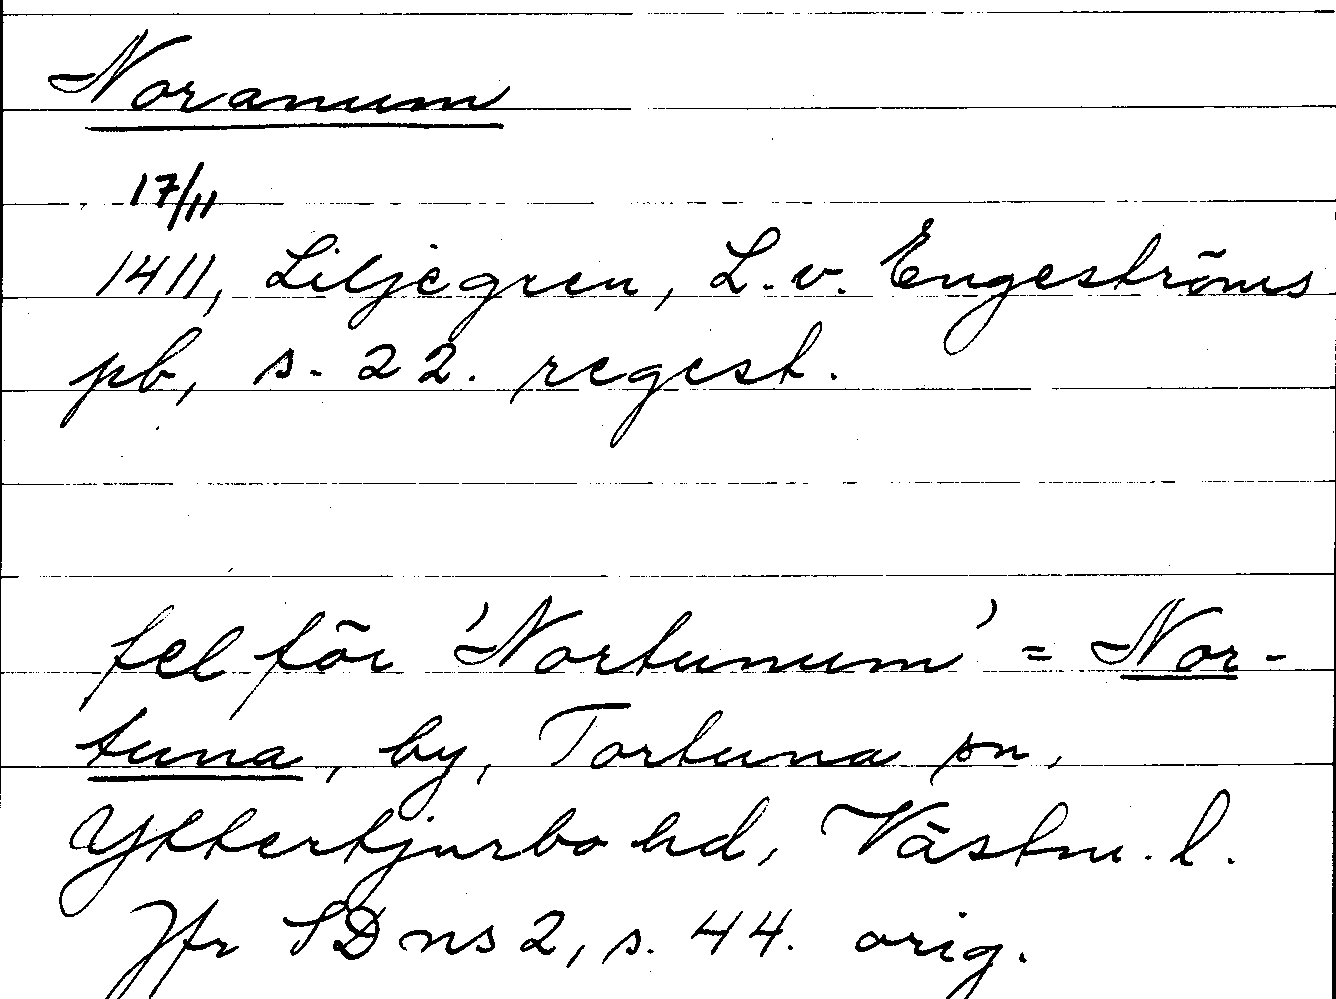 Noranum
17/11
1411, Liljegren, L. v. Engeströms
pb, s. 22. regest.
fel för 'Nortunum' = Nor-
tuna, by, Tortuna sn,
Yttertjurbo hd, Västm. l.
Jfr SD ns 2, s. 44. orig.